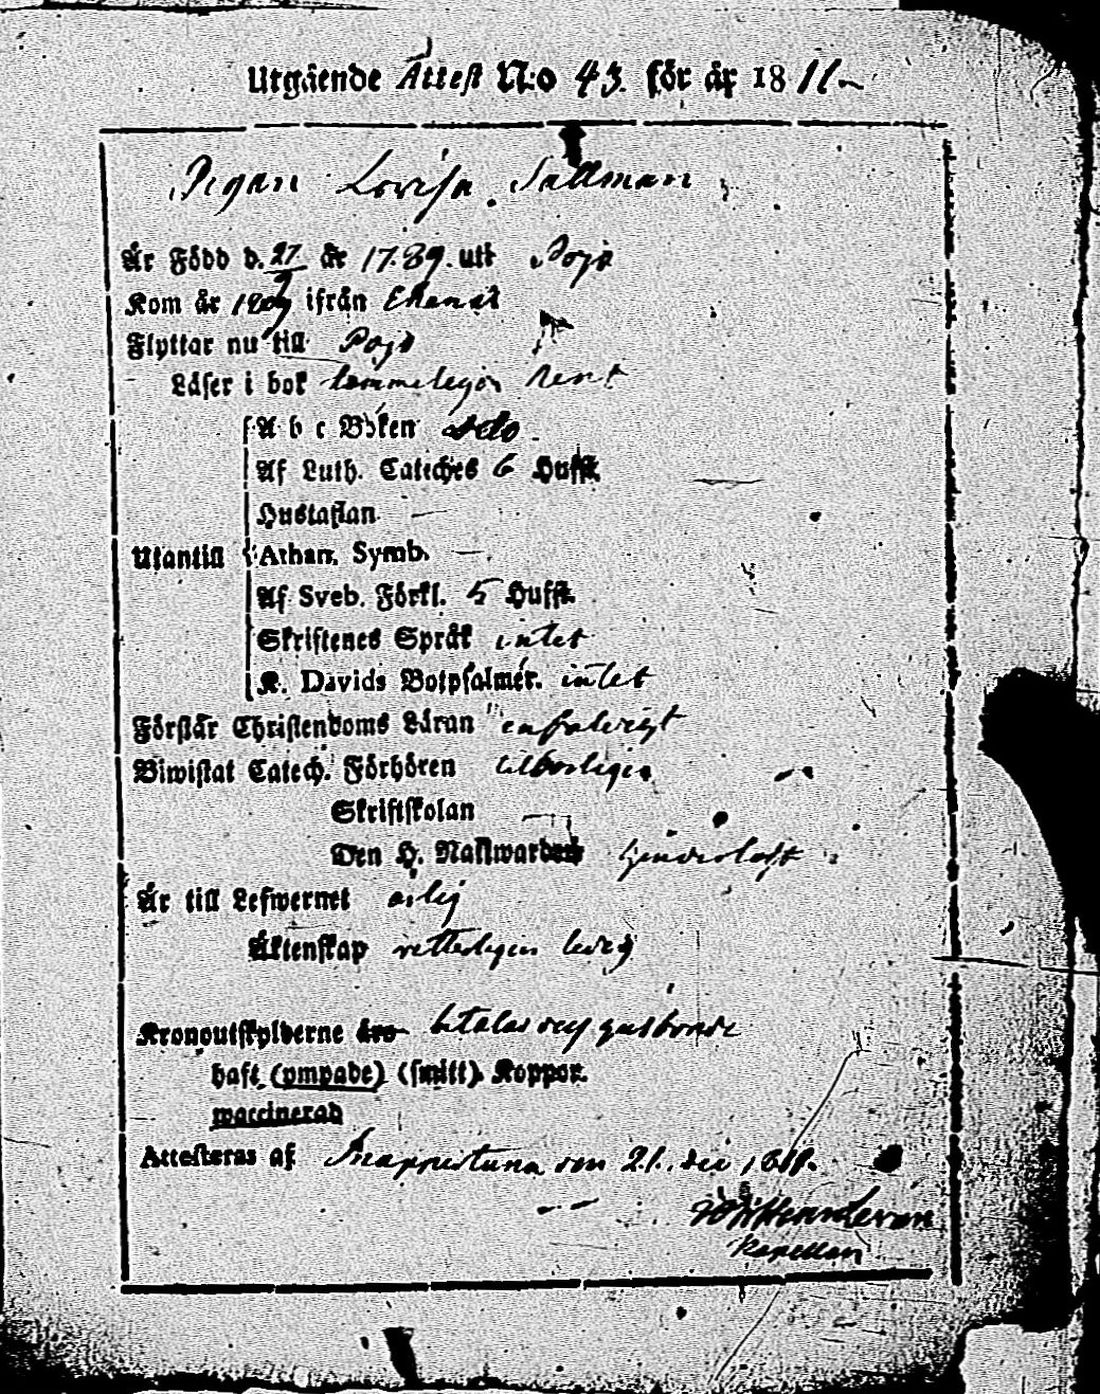 Utgående Attest N:o 43. för år 1811
Pigan Lovisa Sallman
År Född d. 27/9 år 1789. utj Pojo
Kom år 1809 ifrån Ekenäs
Flyttar nu till Pojo
Läser i bok temmeligen rent
A b c Boken dito
Af Luth. Cateches 6 Hufst.
Hustaflan —
Utantill Athan. Symb. —
Af Sveb. Förkl. 5 Hufst.
Skriftenes Språk intet
K. Davids Botpsalmer. intet
Förstår Christendoms Läran enfaldigt
Biwistat Catech. Förhören
Skriftskolan —
Den H. Nattwarden
År till Lefwernet ärlig
Äktenskap veterligen ledig
Kronoutskylderne äro betalas af husbonde
haft (ympade) (smitt) Koppor.
waccinerad
Attesteras af Snappertuna den 21. Dec 1811.
Kapellan